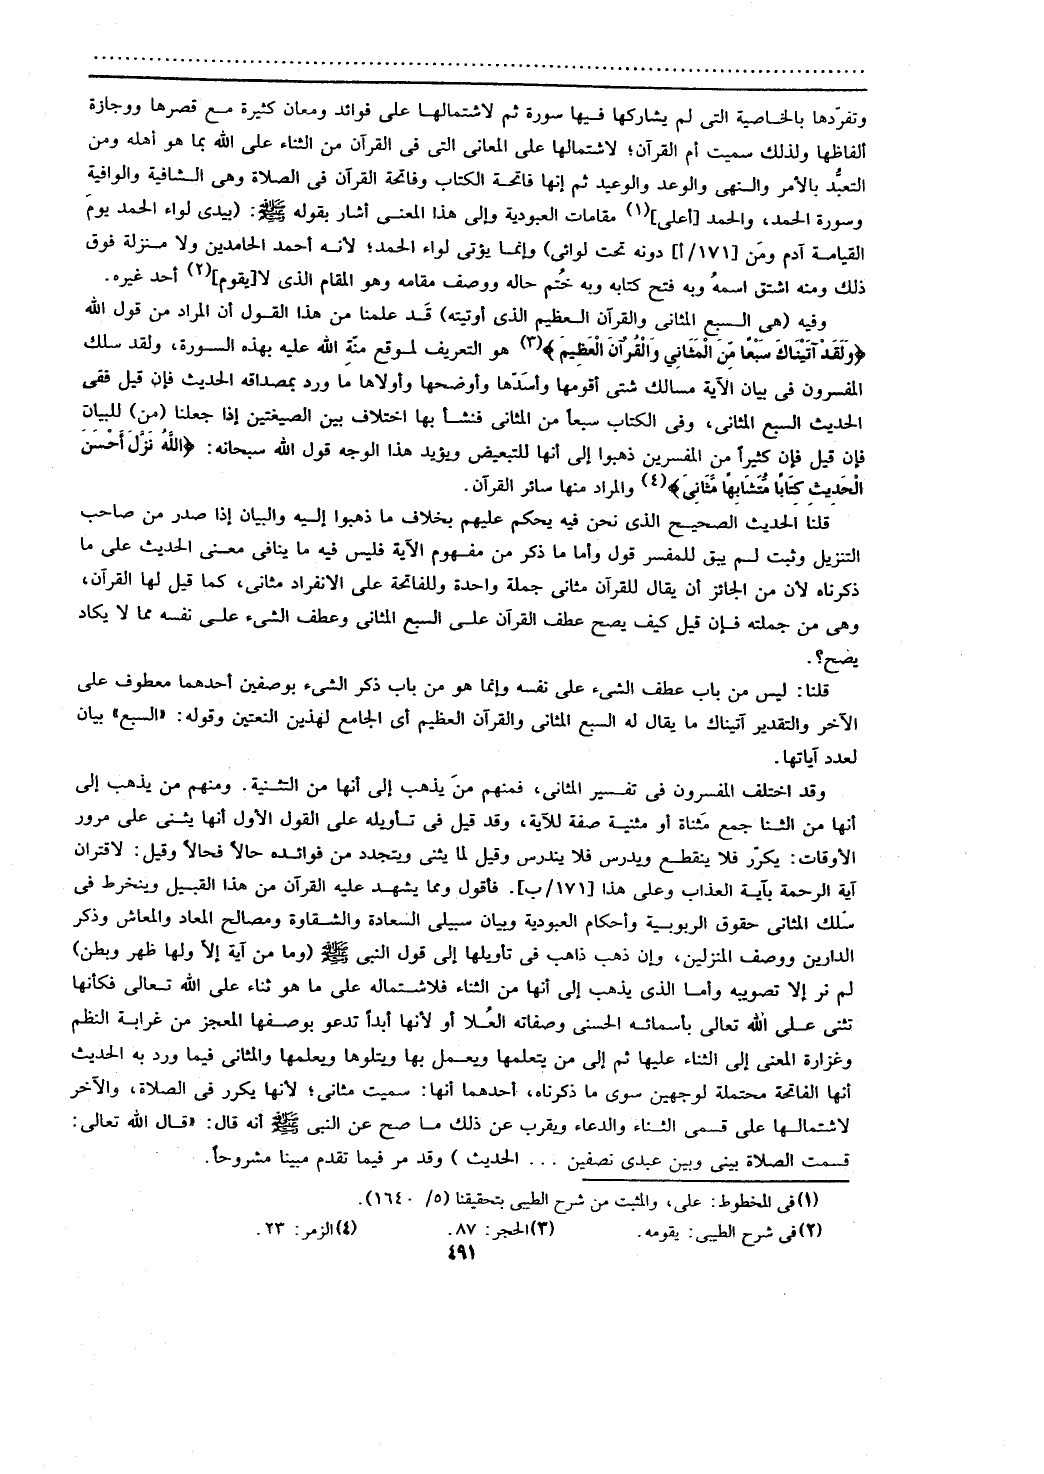 وتفرّدها بالخاصية التى لم يشاركها فيها سورة ثم لاشتمالها على فوائد ومعان كثيرة مع قصرها ووجازة
ألفاظها ولذلك سميت أم القرآن؛ لاشتمالها على المعانى التى فى القرآن من الثناء على الله بما هو أهله ومن
التعبُّد بالأمر والنهى والوعد والوعيد ثم إنها فاتحة الكتاب وفاتحة القرآن فى الصلاة وهى الشافية والوافية
وسورة الحمد، والحمد [أعلى](١) مقامات العبودية وإلى هذا المعنى أشار بقوله ﷺ: (بيدى لواء الحمد يومَ
القيامة آدم ومَن [١٧١/أ] دونه تحت لوائى) وإنما يؤتى لواء الحمد؛ لأنه أحمد الحامدين ولا منزلة فوق
ذلك ومنه اشتق اسمهُ وبه فتح كتابه وبه خُتم حاله ووصف مقامه وهو المقام الذى لا[يقوم](٢) أحد غيره.
وفيه (هى السبع المثانى والقرآن العظيم الذى أوتيته) قَد علمنا من هذا القول أن المراد من قول الله
﴿وَلَقَدْ آتَيْنَاكَ سَبْعًا مِّنَ الْمَثَانِي وَالْقُرْآنَ الْعَظِيمَ﴾(٣) هو التعريف لموقع منّةِ الله عليه بهذه السورة، ولقد سلك
المفسرون فى بيان الآية مسالك شتى أقومها وأسَدّها وأوضحها وأولاها ما ورد بمصداقه الحديث فإن قيل ففى
الحديث السبع المثانى، وفى الكتاب سبعاً من المثانى فنشأ بها اختلاف بين الصيغتين إذا جعلنا (من) للبيان
فإن قيل فإن كثيراً من المفسرين ذهبوا إلى أنها للتبعيض ويؤيد هذا الوجه قول الله سبحانه: ﴿اللَّهُ نَزَّلَ أَحْسَنَ
الْحَدِيثِ كِتَابًا مُّتَشَابِهًا مَّثَانِيَ﴾(٤) والمراد منها سائر القرآن.
قلنا الحديث الصحيح الذى نحن فيه يحكم عليهم بخلاف ما ذهبوا إليه والبيان إذا صدر من صاحب
التنزيل وثبت لم يبق للمفسر قول وأما ما ذكر من مفهوم الآية فليس فيه ما ينافى معنى الحديث على ما
ذكرناه لأن من الجائز أن يقال للقرآن مثانى جملة واحدة وللفاتحة على الانفراد مثانى، كما قيل لها القرآن،
وهى من جملته فإن قيل كيف يصح عطف القرآن على السبع المثانى وعطف الشىء على نفسه مما لا يكاد
يضح؟.
قلنا: ليس من باب عطف الشىء على نفسه وإنما هو من باب ذكر الشىء بوصفين أحدهما معطوف على
الآخر والتقدير آتيناك ما يقال له السبع المثانى والقرآن العظيم أى الجامع لهذين النعتين وقوله: «السبع» بيان
لعدد آياتها.
وقد اختلف المفسرون فى تفسير المثانى، فمنهم منَ يذهب إلى أنها من التثنية. ومنهم من يذهب إلى
أنها من الثنا جمع مَثناة أو مثنية صفة للآية، وقد قيل فى تأويله على القول الأول أنها يثنى على مرور
الأوقات: يكرّر فلا ينقطع ويدرس فلا يندرس وقيل لما يثنى ويتجدد من فوائده حالاً فحالاً وقيل: لاقتران
آية الرحمة بآية العذاب وعلى هذا [١٧١/ب]. فأقول ومما يشهد عليه القرآن من هذا القبيل وينخرط فى
سّلك المثانى حقوق الربوبية وأحكام العبودية وبيان سبيلى السعادة والشقاوة ومصالح المعاد والمعاش وذكر
الدارين ووصف المنزلين، وإن ذهب ذاهب فى تأويلها إلى قول النبى ﷺ (وما من آية إلاّ ولها ظهر وبطن)
لم نر إلا تصويبه وأما الذى يذهب إلى أنها من الثناء فلاشتماله على ما هو ثناء على الله تعالى فكأنها
تثنى على الله تعالى بأسمائه الحسنى وصفاته العُلا أو لأنها أبداً تدعو بوصفها المعجز من غرابة النظم
وغزارة المعنى إلى الثناء عليها ثم إلى من يتعلمها ويعمل بها ويتلوها ويعلمها والمثانى فيما ورد به الحديث
أنها الفاتحة محتملة لوجهين سوى ما ذكرناه، أحدهما أنها: سميت مثانى؛ لأنها يكرر فى الصلاة، والآخر
لاشتمالها على قسمى الثناء والدعاء ويقرب عن ذلك ما صح عن النبى ﷺ أنه قال: «قال الله تعالى:
قسمت الصلاة بينى وبين عبدى نصفين ... الحديث ) وقد مر فيما تقدم مبينا مشروحاً.
(١)فى المخطوط: على، والمثبت من شرح الطيبى بتحقيقنا (٥/ ١٦٤٠).
(٢)فى شرح الطيبى: يقومه. (٣)الحجر: ٨٧. (٤)الزمر: ٢٣.
٤٩١